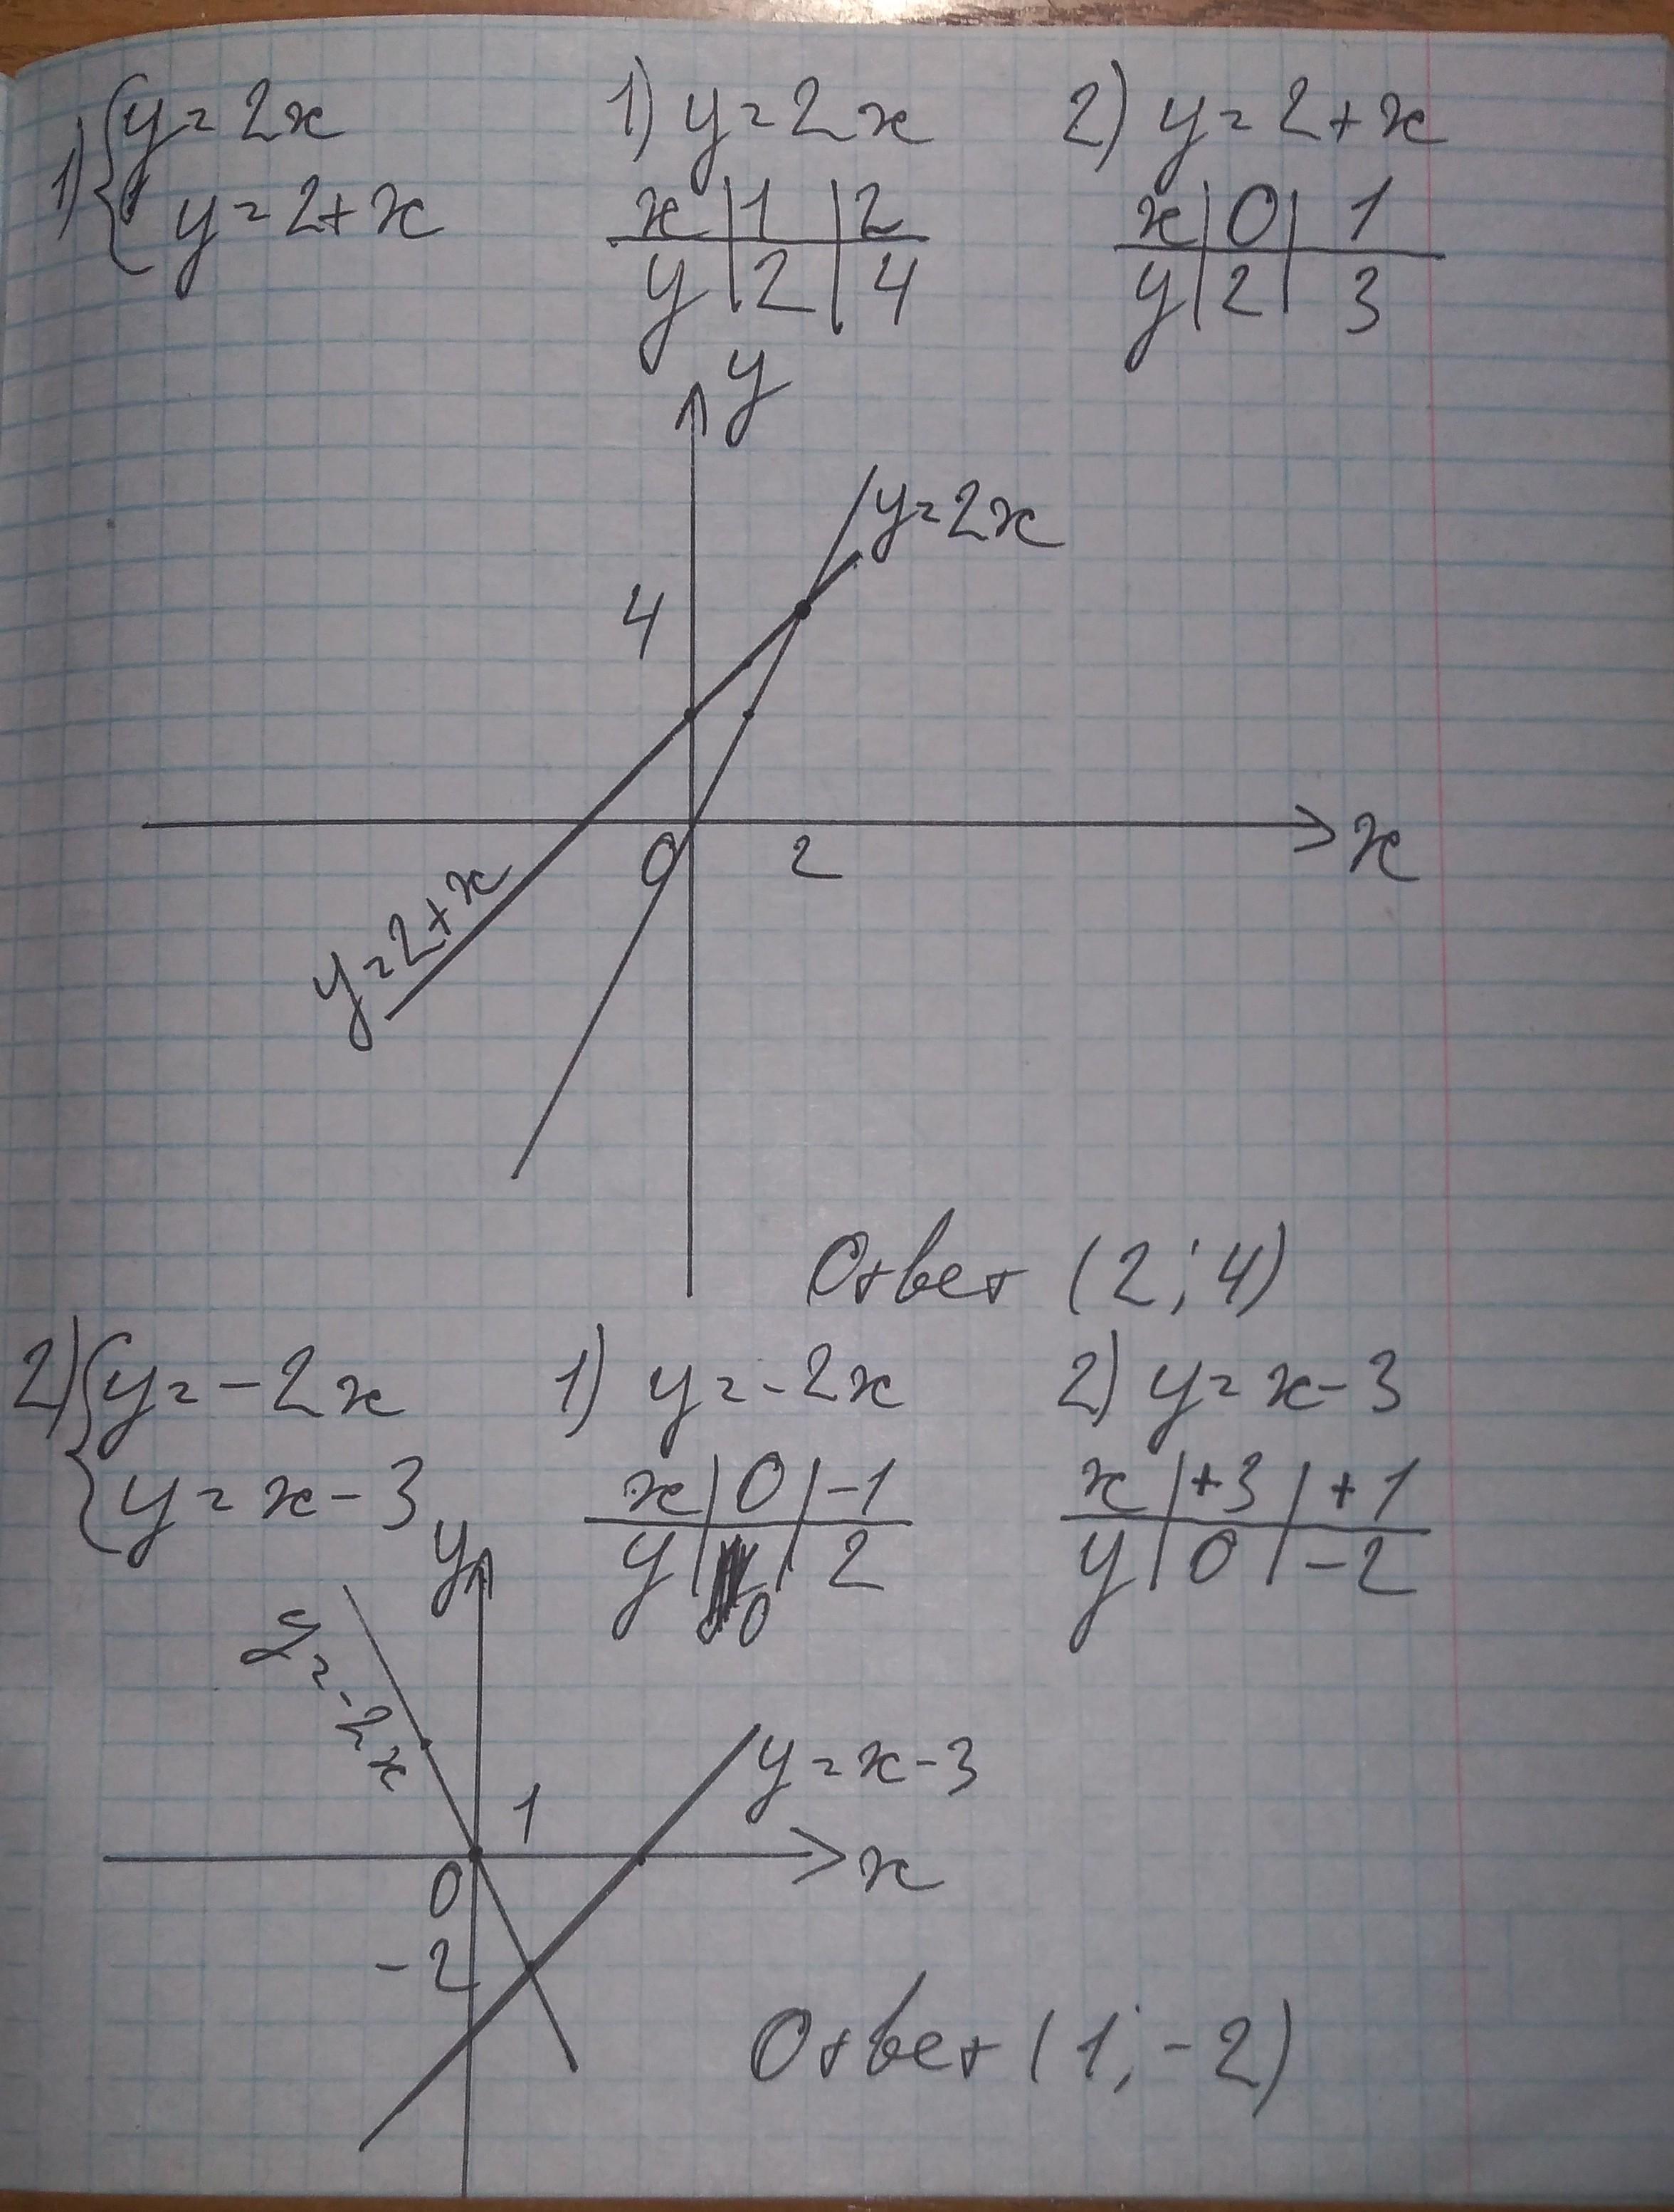 1) { y = 2x 1) y = 2x 2) y = 2 + x
y = 2 + x x | 1 | 2 x | 0 | 1
y | 2 | 4 y | 2 | 3
y
y = 2x
4
0 2 x
y = 2 + x
Ответ (2; 4)
2) { y = -2x 1) y = -2x 2) y = x - 3
y = x - 3 x | 0 | -1 x | +3 | +1
y | 0 | 2 y | 0 | -2
y
y = -2x
y = x - 3
1
0 x
-2
Ответ (1; -2)